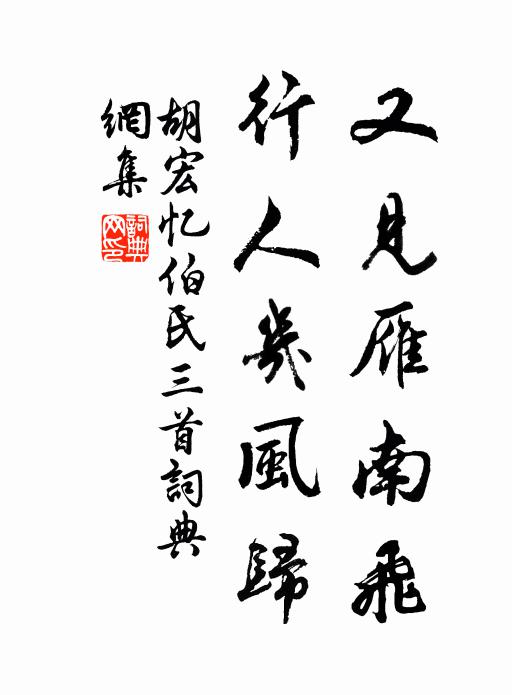 又見雁南飛
行人幾風歸
胡宏忆伯氏三首詞典
網集
詞典
网印